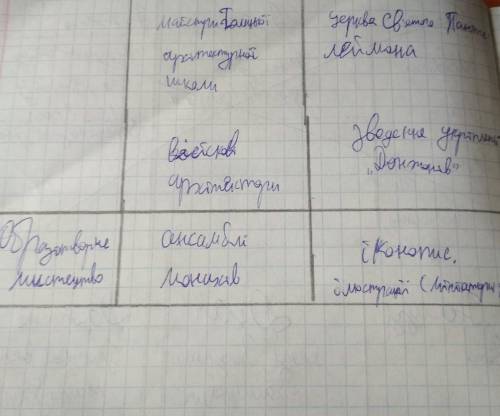 майстри Галицької
архітектурної
школи
церква Святого Панте
леймона
військові
архітектори
зведення укріплень
„Донжонів"
Образотворче
мистецтво
ансамблі
монахів
іконопис.
ілюстрації (мініатюри)